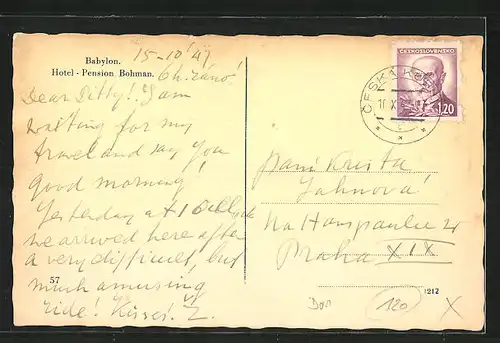 Babylon.
Hotel - Pension Bohman.
15-10 47
6h. ráno!
Dear Ditty! I am
waiting for my
travel and say you
good morning!
Yesterday at 1 O'clock
we arrived here after
a very difficult, but
much amusing
ride! Kisses! Z.
57
ČESKOSLOVENSKO
1.20
ČESKÁ
paní Krista
Jahnová
Na Hanspaulce
Praha XIX
1212
120
X